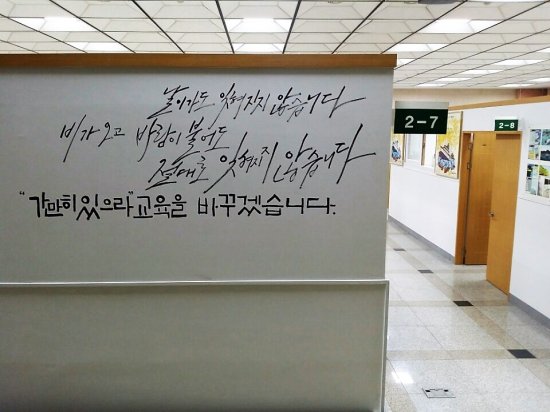 날이가도 잊혀지지 않습니다
비가오고 바람이 불어도
절대로 잊혀지지 않습니다
"가만히있으라"교육을 바꾸겠습니다.
2-7
2-8